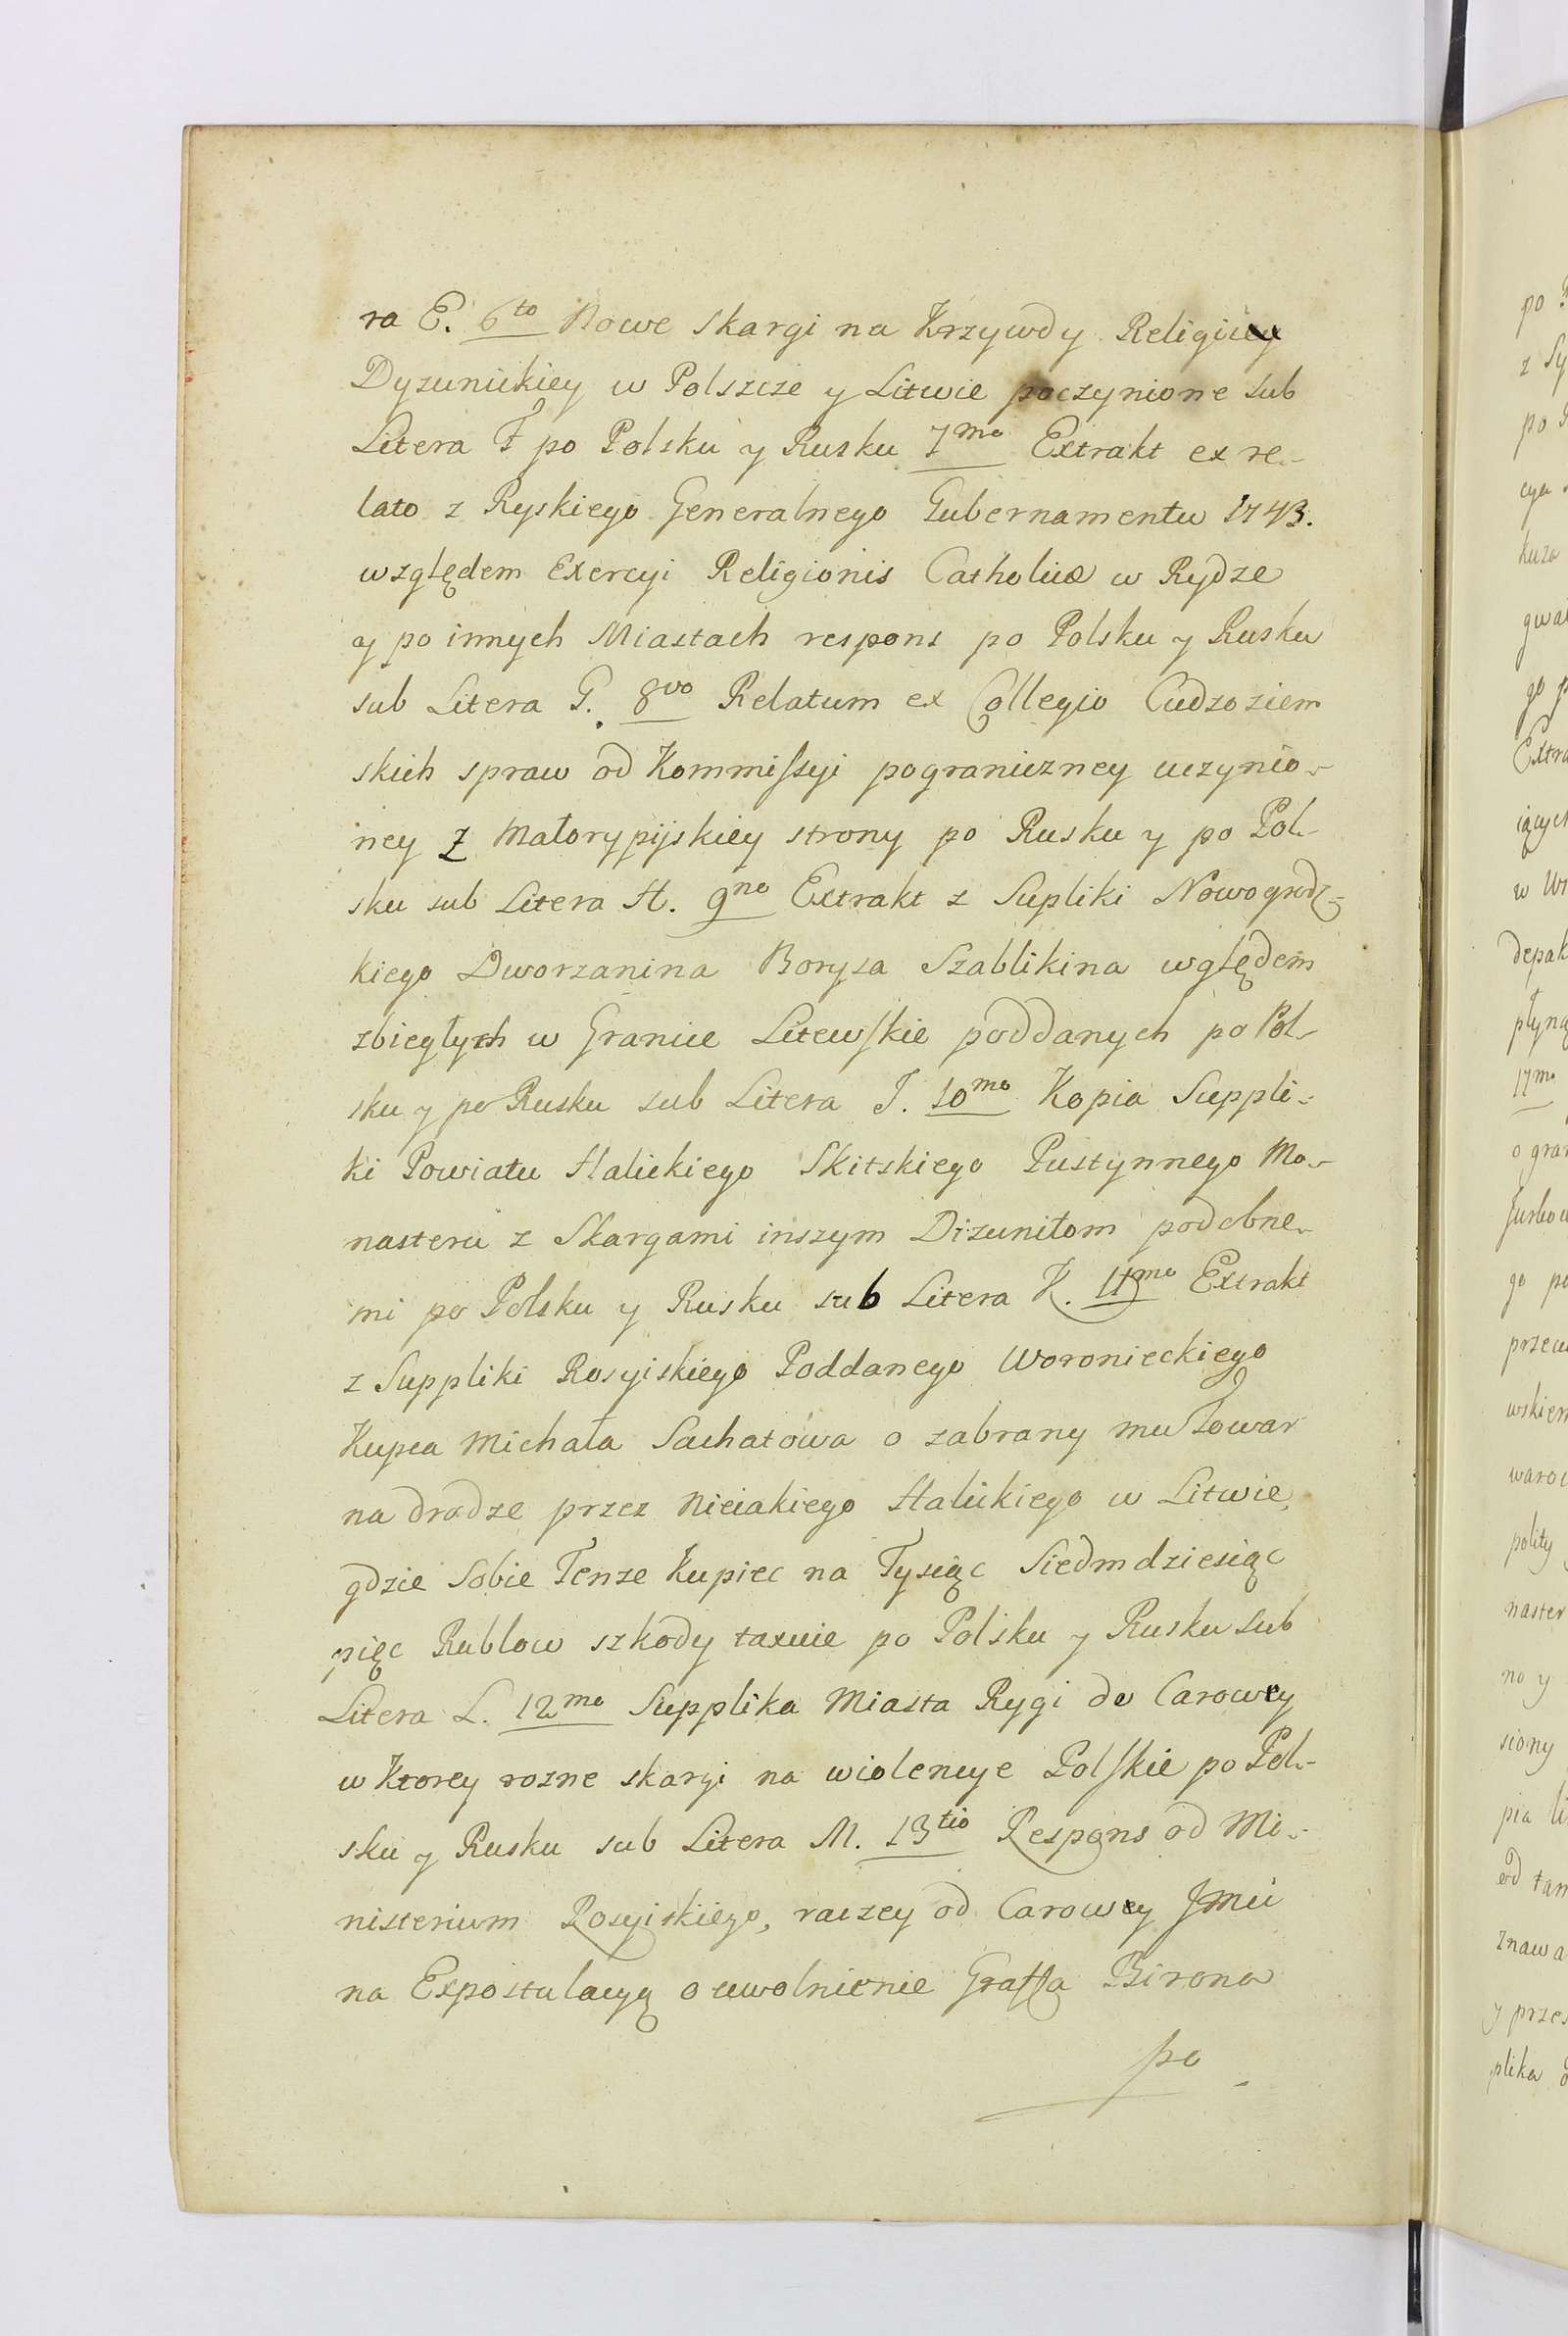 ra E. 6to Nowe skargi na Krzywdy Religiey
Dyzunickiey w Polszcze y Litwie poczynione sub
Litera F po Polsku y Rusku 7mo Extrakt ex re-
lato z Ryskiego Generalnego Gubernamentu 1743.
względem Exercyi Religionis Catholicæ w Rydze
y po innych Miastach respons po Polsku y Rusku
sub Litera G. 8vo Relatum ex Collegio Cudzoziem
skich spraw od Kommissyi pograniczney uczynio-
ney z Małorypijskiey strony po Rusku y po Pol-
sku sub Litera H. 9no Extrakt z Supliki Nowogrodz-
kiego Dworzanina Boryza Szablikina względem
zbiegłych w Granice Litewskie poddanych po Pol-
sku y po Rusku sub Litera J. 10mo Kopia Suppli-
ki Powiatu Halickiego Skitskiego Pustynnego Mo-
nasteru z Skargami inszym Dizunitom podobne-
mi po Polsku y Rusku sub Litera K. 11mo Extrakt
z Suppliki Rosyiskiego Poddanego Woronieckiego
Kupca Michała Sachatówa o zabrany mu Towar
na drodze przez Nieiakiego Halickiego w Litwie,
gdzie Sobie Tenze Kupiec na Tysiąc Siedmdziesiąc
pięc Rublow szkody taxuie po Polsku y Rusku sub
Litera L. 12mo Supplika Miasta Rygi do Carowey
w Ktorey rozne skargi na wiolencye Polskie po Pol-
sku y Rusku sub Litera M. 13tio Respons od Mi-
nisterium Rosyiskiego, raczey od Carowey Jmci
na Expostulacyą o uwolnienie Graffa Birona
po
po
z Sy
po
cya
kuza
gwał
go p
Extra
iących
w
depak
płyną
17mo
o gran
go po
przeci
wskiem
waroc
polity
naster
no y
siony
pia li
od tam
znawa
y przes
plika